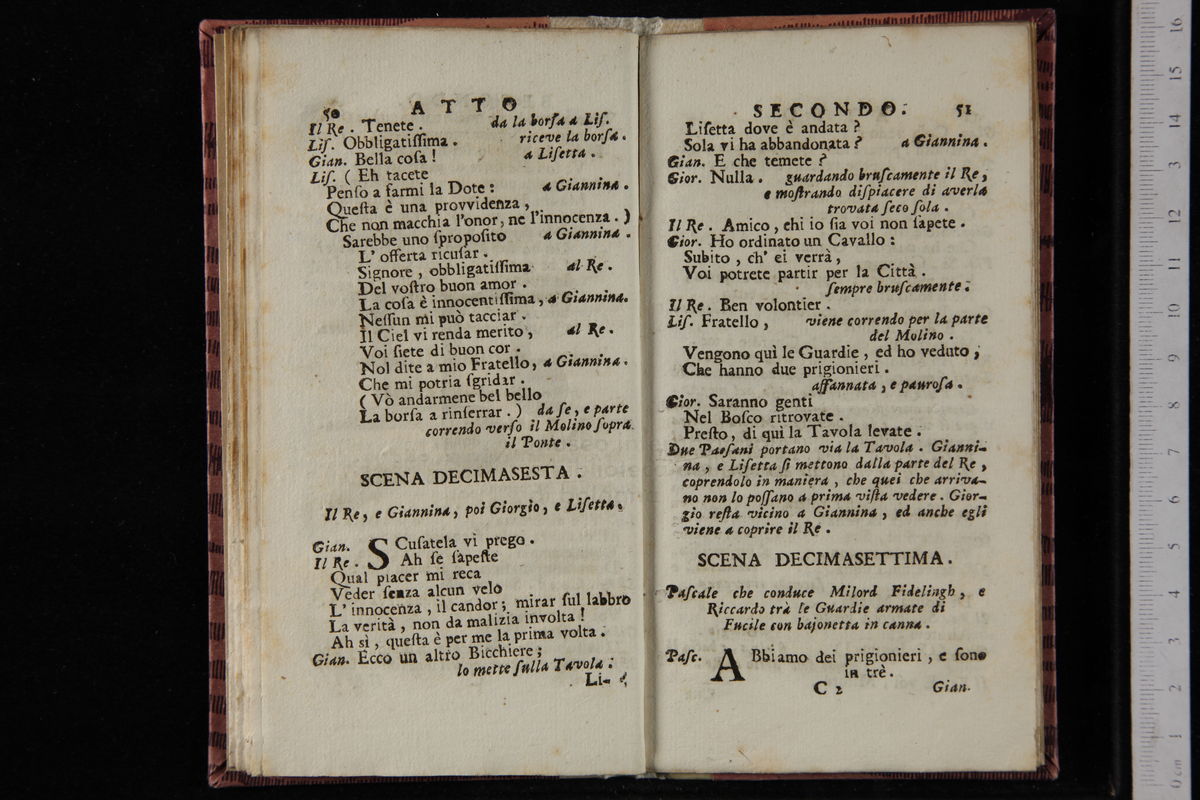 50 ATTO
Il Re. Tenete. da la borſa a Liſ.
Liſ. Obbligatiſſima. riceve la borſa.
Gian. Bella coſa! a Liſetta.
Liſ. (Eh tacete
Penſo a farmi la Dote: a Giannina.
Queſta è una provvidenza,
Che non macchia l'onor, ne l'innocenza.)
Sarebbe uno ſpropoſito a Giannina.
L' offerta ricuſar.
Signore, obbligatiſſima al Re.
Del voſtro buon amor.
La coſa è innocentiſſima, a Giannina.
Neſſun mi può tacciar.
Il Ciel vi renda merito, al Re.
Voi ſiete di buon cor.
Nol dite a mio Fratello, a Giannina.
Che mi potria ſgridar.
(Vò andarmene bel bello
La borſa a rinſerrar.) da ſe, e parte
correndo verſo il Molino ſopra
il Ponte.
SCENA DECIMASESTA.
Il Re, e Giannina, poi Giorgio, e Liſetta.
Gian. SCuſatela vi prego.
Il Re. Ah ſe ſapeſte
Qual piacer mi reca
Veder ſenza alcun velo
L' innocenza, il candor; mirar ſul labbro
La verità, non da malizia involta!
Ah sì, queſta è per me la prima volta.
Gian. Ecco un altro Bicchiere;
lo mette ſulla Tavola.
Li-
SECONDO. 51
Liſetta dove è andata?
Sola vi ha abbandonata? a Giannina.
Gian. E che temete?
Gior. Nulla. guardando bruſcamente il Re,
e moſtrando diſpiacere di averla
trovata ſeco ſola.
Il Re. Amico, chi io ſia voi non ſapete.
Gior. Ho ordinato un Cavallo:
Subito, ch' ei verrà,
Voi potrete partir per la Città.
ſempre bruſcamente.
Il Re. Ben volontier.
Liſ. Fratello, viene correndo per la parte
del Molino.
Vengono quì le Guardie, ed ho veduto,
Che hanno due prigionieri.
affannata, e pauroſa.
Gior. Saranno genti
Nel Boſco ritrovate.
Preſto, di quì la Tavola levate.
Due Paeſani portano via la Tavola. Gianni-
na, e Liſetta ſi mettono dalla parte del Re,
coprendolo in maniera, che quei che arriva-
no non lo poſſano a prima viſta vedere. Gior-
gio reſta vicino a Giannina, ed anche egli
viene a coprire il Re.
SCENA DECIMASETTIMA.
Paſcale che conduce Milord Fidelingh, e
Riccardo trà le Guardie armate di
Fucile con bajonetta in canna.
Paſc. ABbiamo dei prigionieri, e ſono
in trè.
C 2 Gian-
16
15
14
13
12
11
10
9
8
7
6
5
4
3
2
1
0 cm